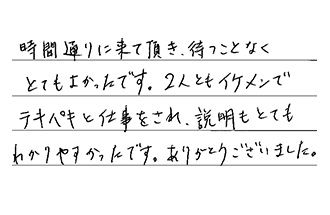 時間通りに来て頂き、待つことなく
とてもよかったです。2人ともイケメンで
テキパキと仕事をされ、説明もとても
わかりやすかったです。ありがとうございました。